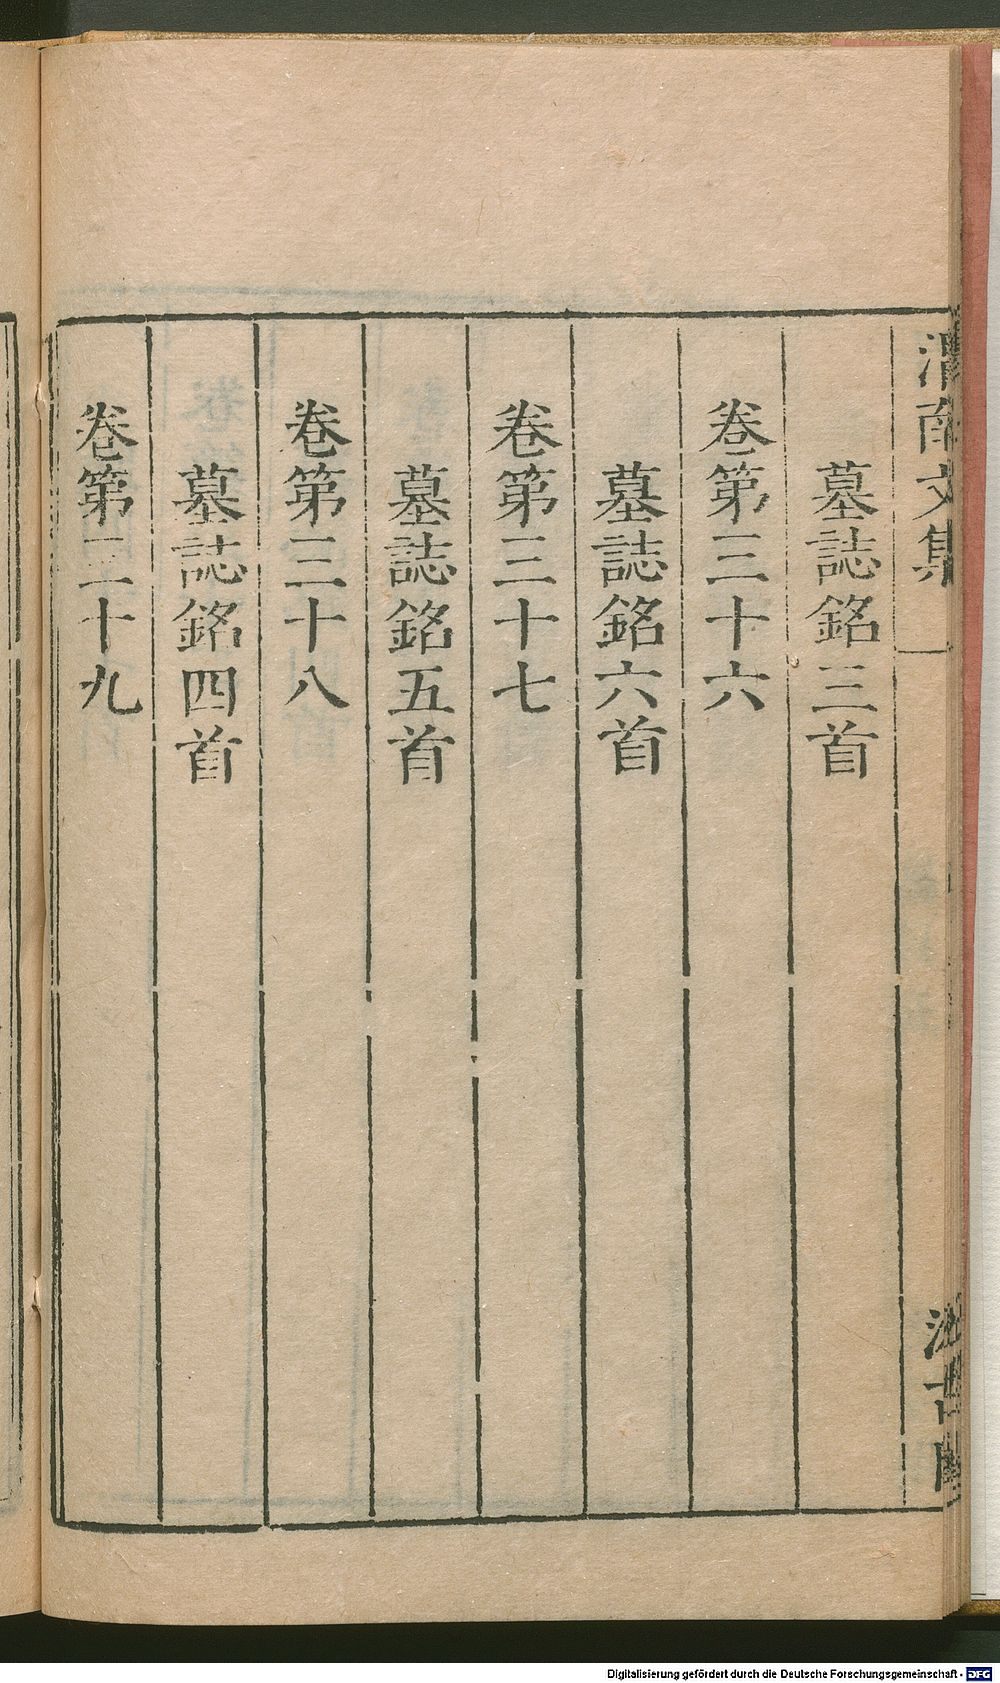 渭南文集
墓誌銘三首
卷第三十六
墓誌銘六首
卷第三十七
墓誌銘五首
卷第三十八
墓誌銘四首
卷第三十九
汲古閣
Digitalisierung gefördert durch die Deutsche Forschungsgemeinschaft - DFG